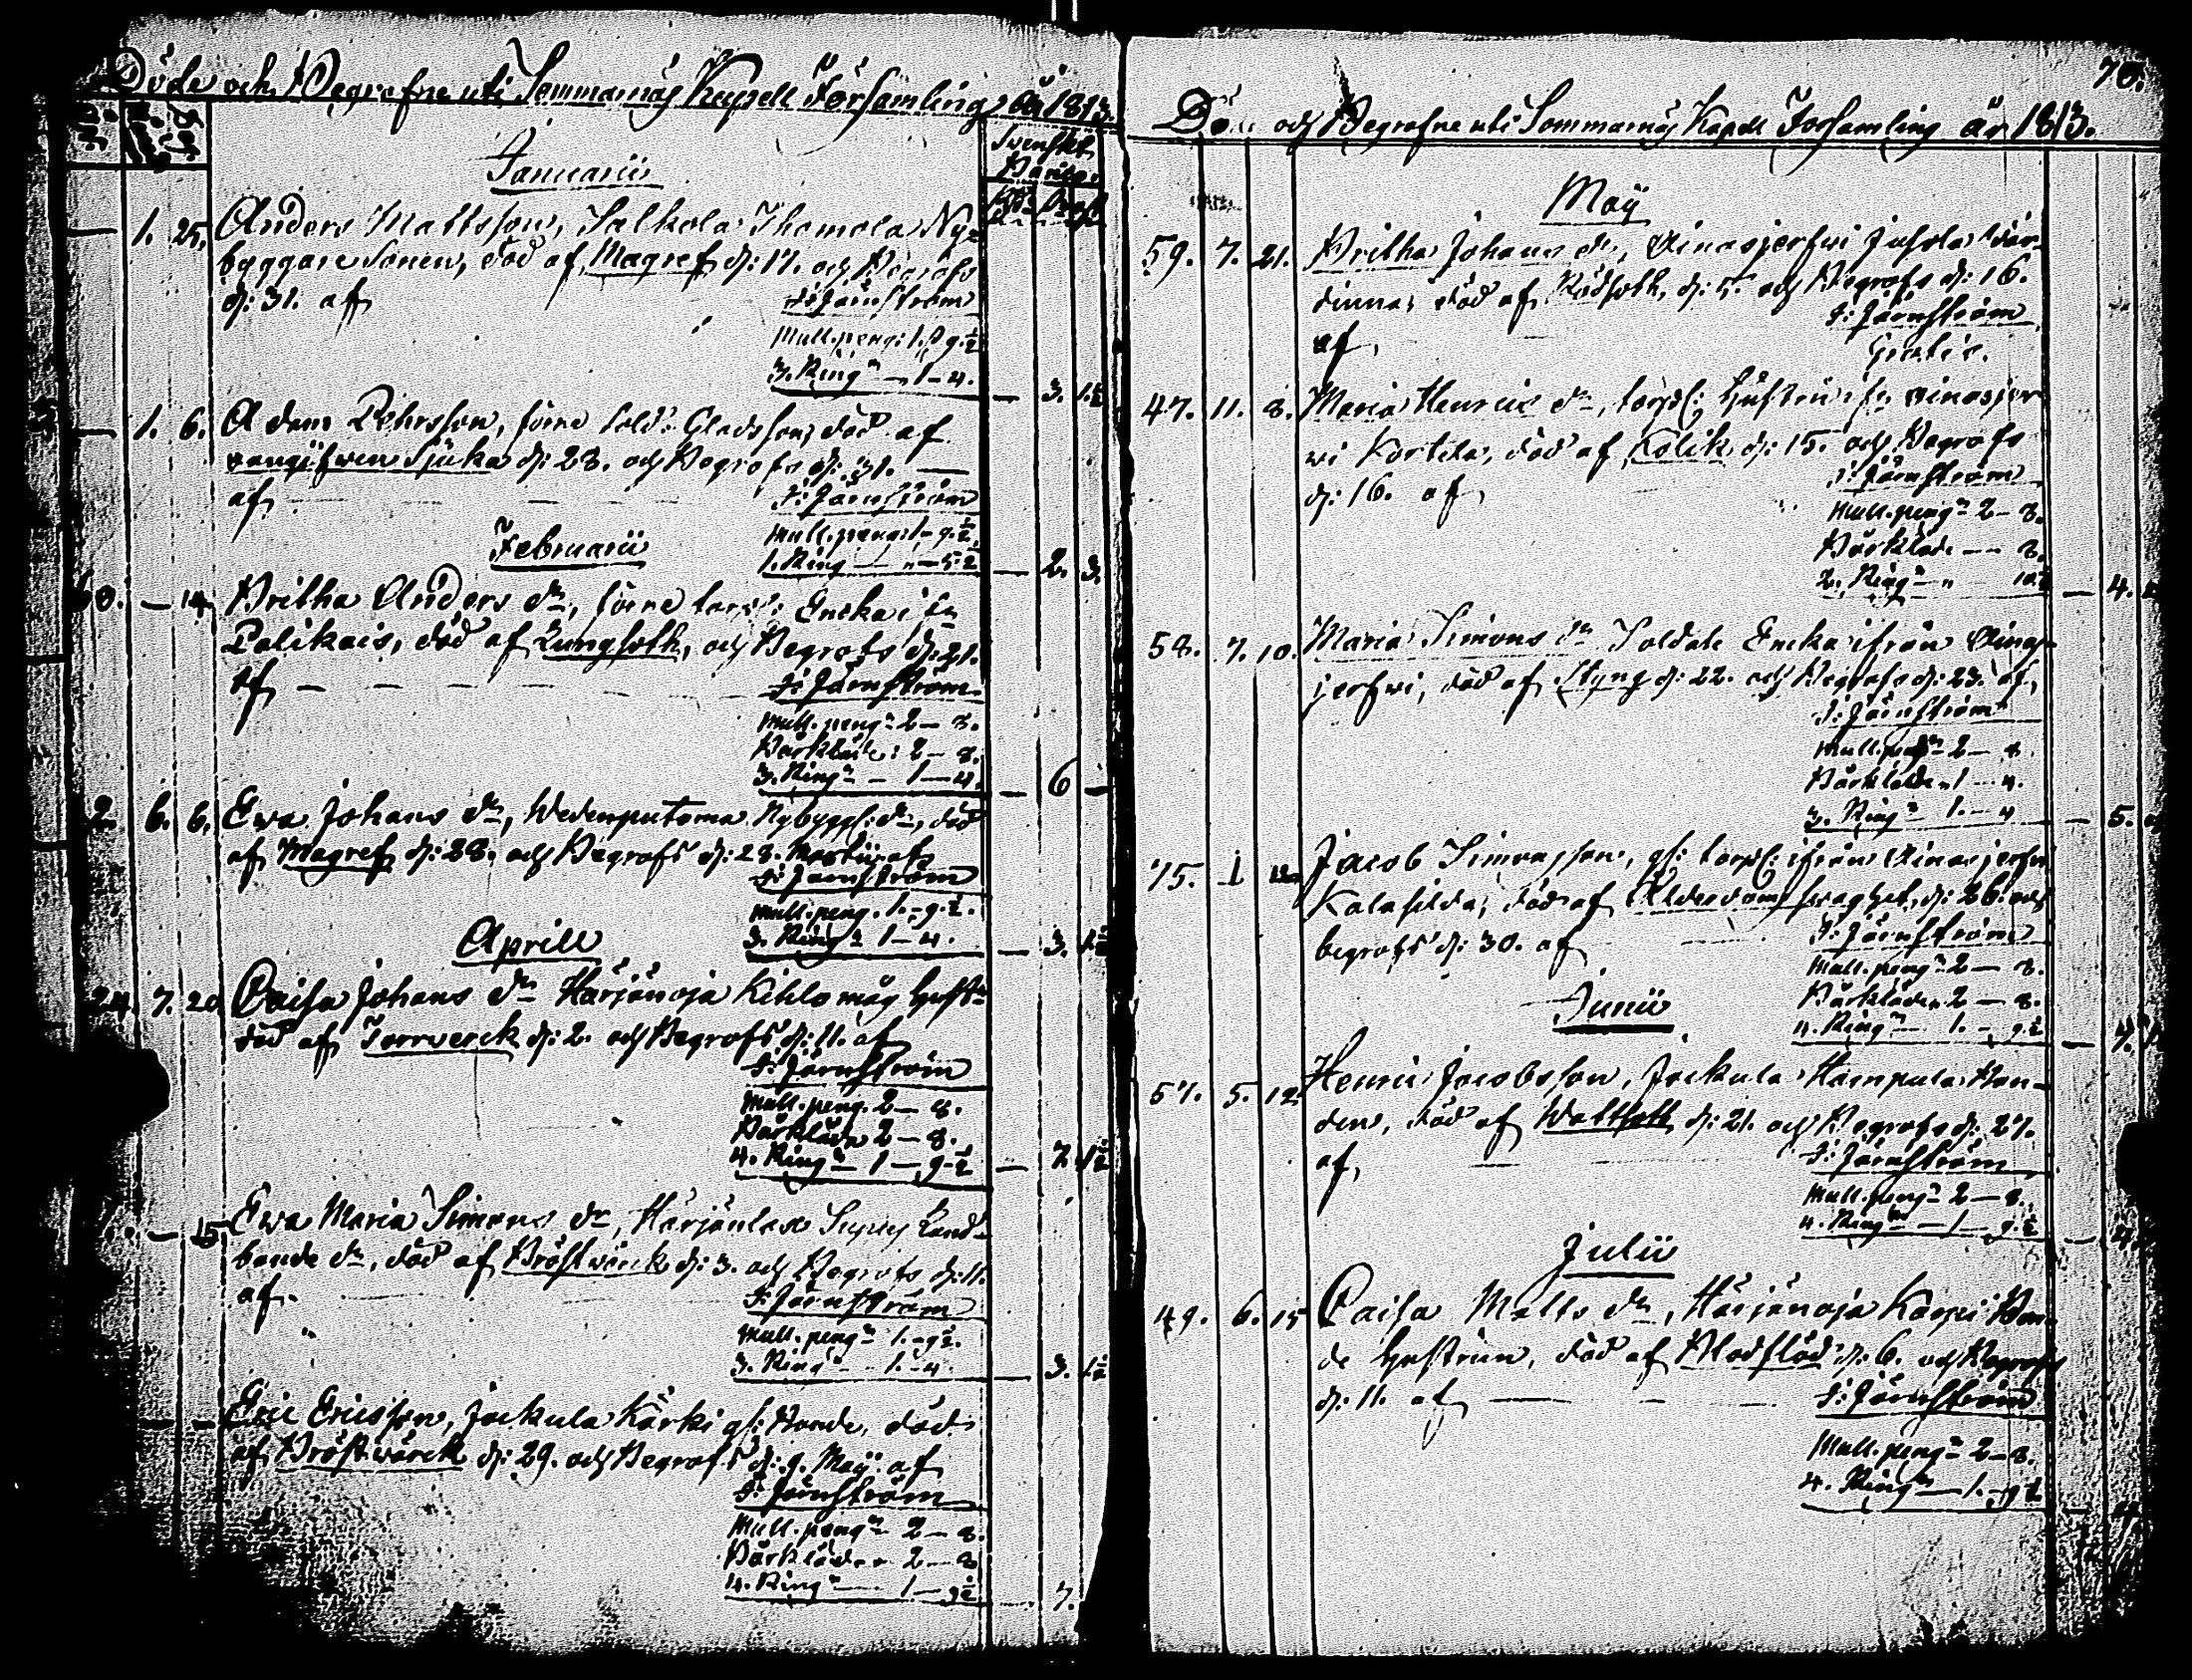 Döde och Begrafne uti Sommarnäs Kapell Församling år 1813.
Svenskt
Januarii
1. 25. Anders Mattsson, Salkola Thomola Ny-
byggare Sonen, död af Magref d: 17. och Begrofs
d: 31. af
J: Järnström
Mull.peng: 1. β 9.½
3. Ring:n — 1 — 4.
— 3. 1.½
— 1. 6. Adam Pehrsson, förre Sold: Gladssson, död af
sjuka d: 28. och Begrofs d: 31. —
af
J: Järnström
Februarii
Mull.peng: 1 — 9.½
1. Ring — " — 5.½
— 2. 3.
— 14. Britha Anders d:r, förre torp: Encka i fr
Palikais, död af Lungsoth, och Begrofs d: 21.
af
J: Järnström
Mull.peng:n 2 — 8.
Bårkläde: 2 — 8.
3. Ring:n — 1 — 4.
— 6 —
2. 6. 6. Ewa Johans d:r, Wedenputoma Nybygg: d:r, död
af Magref d: 28. och Begrofs d: 28. af
J: Järnström
Mull.peng. 1. — 9.½.
3. Ring:n 1 — 4.
— 3. 1½
Aprill
24. 7. 20 Caisa Johans d:r Härjänoja Kihlo måg Hust:
död af Torrverck d: 2. och Begrofs d: 11. af
J: Järnström
Mull.peng. 2 — 8.
Bårkläde 2 — 8.
4. Ring:n 1 — 9.½
— 7. 1½
— 15. Ewa Maria Simons d:r, Härjänlax Land-
bonde d:r, död af Bröstwärck d: 3. och Begrofs d: 11.
af.
J: Järnström
Mull.peng:n 1. — 9½.
3. Ring:n — 1. — 4.
— 3. 1½
— — Eric Ericsson, Jockula Kärki gl: Bonde, död
af Bröstwärck d: 29. och Begrofs d: 9. Maÿ af
J: Järnström
Mull.peng:n 2 — 8.
Bårkläde 2 — 8
4. Ring:n — 1 — 9½
7.
70.
Dö och Begrafne uti Sommarnäs Kapell Församling år 1813.
Maÿ
59. 7. 21. Britha Johans d:r, Ainasjerfwi Juhola Wär-
dinna, död af Rödsoth, d: 5. och Begrofs d: 16.
af,
J: Järnström
Gratis.
47. 11. 8. Maria Henrics d:r, torp: Hustru ifr Ainasjer-
wi Kortela, död af Kolik d: 15. och Begrofs
d: 16. af
J: Järnström
Mull.peng:n 2 — 8.
Bårkläde — — 8.
2. Ring:n " 10.½
— 4.
58. 7. 10. Maria Simons d:r Soldate Encka ifrån Ainas-
jerfwi, död af Styng d: 22. och Begrofs d: 23. af,
J: Järnström
Mull.peng:n 2 — 8
Bårkläde 1 — 4.
3. Ring:n 1. — 4
— 5.
75. 1 Jacob Simonsson, gl: torp: ifrån Ainasjerfwi
Kalasilda, död af Ålderdoms swaghet, d: 26. och
begrofs d: 30. af
J: Järnström
Mull.peng:n 2 — 8.
Bårkläde 2 — 8.
4. Ring:n — 1. — 9.½
— 7.
Junii
57. 5. 12. Henric Jacobsson, Jockula Hampula Bon-
den, död af Wattsott d: 21. och Begrofs d: 27.
af,
J: Järnström
Mull.peng:n 2 — 8.
4. Ring:n — 1 — 9.½
Julii
49. 6. 15 Caisa Matts d:r, Härjänoja Karpi Bon-
de Hustrun, död af Blodflöd d: 6. och Begrofs
d: 11. af
J: Järnström
Mull.peng:n 2 — 8.
4. Ring:n — 1. — 9½